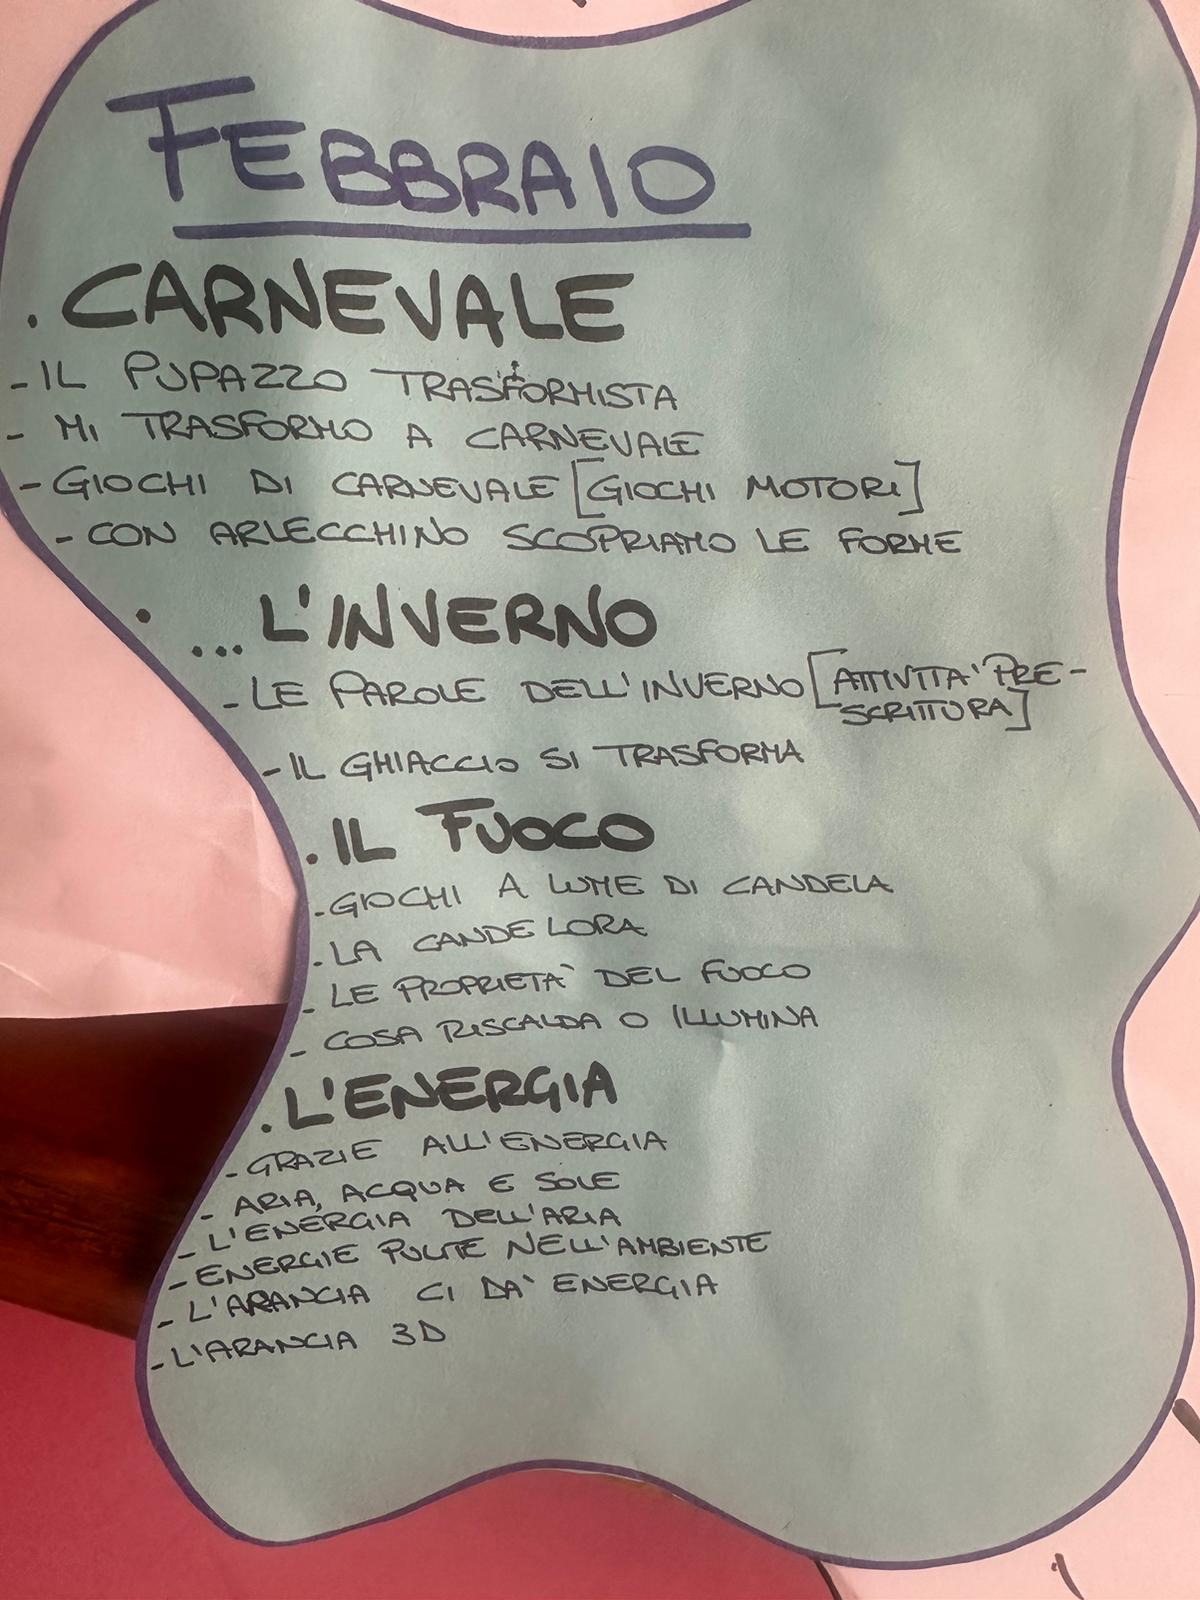 FEBBRAIO
. CARNEVALE
- IL PUPAZZO TRASFORMISTA
- MI TRASFORMO A CARNEVALE
- GIOCHI DI CARNEVALE [GIOCHI MOTORI]
- CON ARLECCHINO SCOPRIAMO LE FORME
. ...L'INVERNO
- LE PAROLE DELL'INVERNO [ATTIVITA' PRE-
SCRITTURA]
- IL GHIACCIO SI TRASFORMA
. IL FUOCO
- GIOCHI A LUME DI CANDELA
. LA CANDELORA
- LE PROPRIETA' DEL FUOCO
- COSA RISCALDA O ILLUMINA
. L'ENERGIA
- GRAZIE ALL'ENERGIA
- ARIA, ACQUA E SOLE
- L'ENERGIA DELL'ARIA
- ENERGIE PULITE NELL'AMBIENTE
- L'ARANCIA CI DA' ENERGIA
- L'ARANCIA 3D